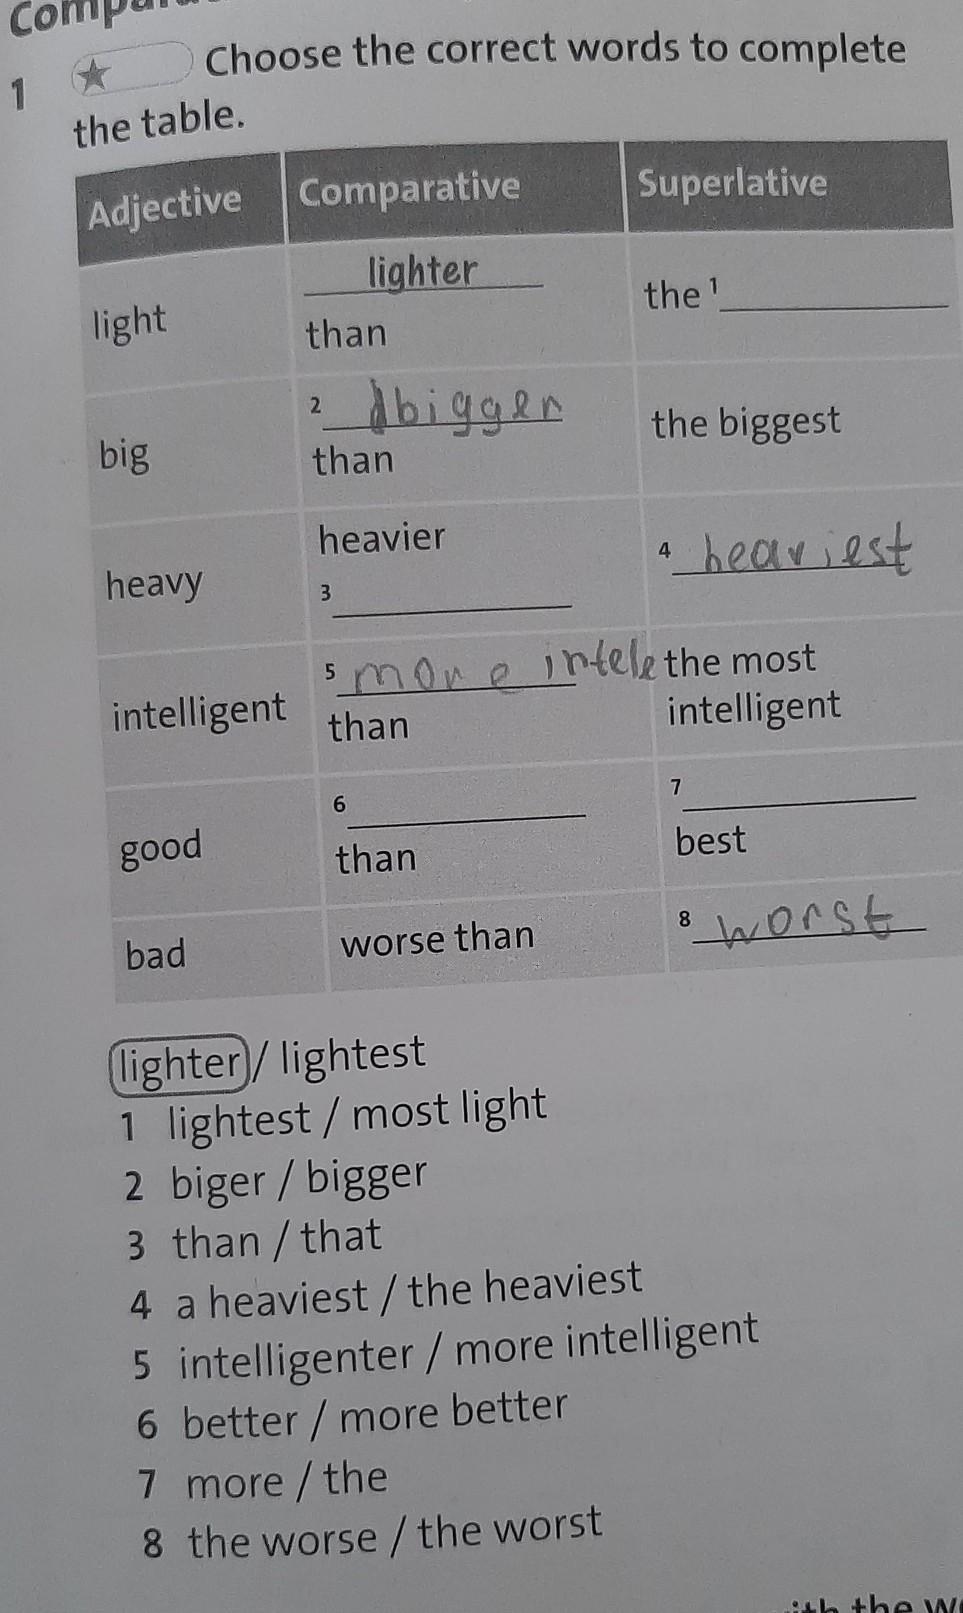 1 Choose the correct words to complete
the table.
Adjective Comparative Superlative
light lighter than the 1
big 2 bigger than the biggest
heavy heavier 3 4 heaviest
intelligent 5 more intele than the most intelligent
good 6 than 7 best
bad worse than 8 worst
lighter / lightest
1 lightest / most light
2 biger / bigger
3 than / that
4 a heaviest / the heaviest
5 intelligenter / more intelligent
6 better / more better
7 more / the
8 the worse / the worst
the